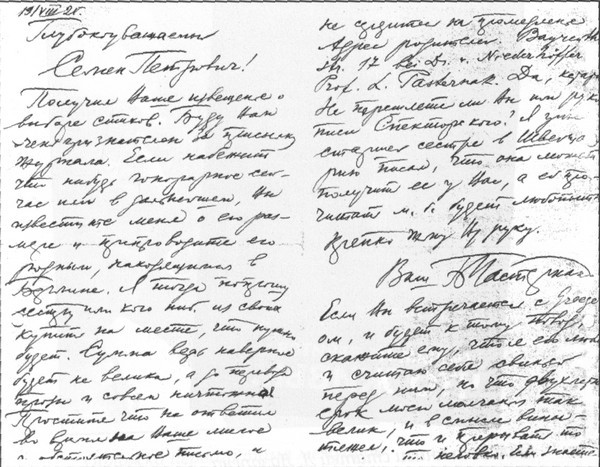 19/VIII 25.
Глубокоуважаемый
Семен Петрович!
Получил Ваше извещение о
выборе стихов. Буду Вам
очень признателен за присылку
журнала. Если набежит
что нибудь гонорарное сей-
час или в дальнейшем, Вы
известите меня о его раз-
мере и препроводите его
родным, находящимся в
Берлине. Я тогда попрошу
сестру или кого ниб. из своих
купить на месте, что нужно
будет. Сумма ведь наверное
будет не велика, а до перевода
сюда и совсем ничтожна.
Простите что не ответил
во время на Ваше милое
и обстоятельное письмо, и
не сердитесь на промедление
Адрес родителей. Bayreuth
Str. 17 bei D. v. Niederhöffer
Prof. L. Pasternak. Да, кстати
Не перешлете ли Вы им руко-
писи Спекторского? Я уже
старшей сестре в Швейца-
рию писал, что она может
получить ее у Вас, а ей про-
читать м. б. будет любопытно
Крепко жму Вашу руку.
Ваш БПастернак
Если Вы встречаетесь с
ом, и будет к тому повод,
скажите ему, что я его люблю
и считаю себя свиньей
перед ним, но что двухлетний
срок моего молчания так
велик, и в смысле вины
тяжел, что и прерывать то
его неловко.